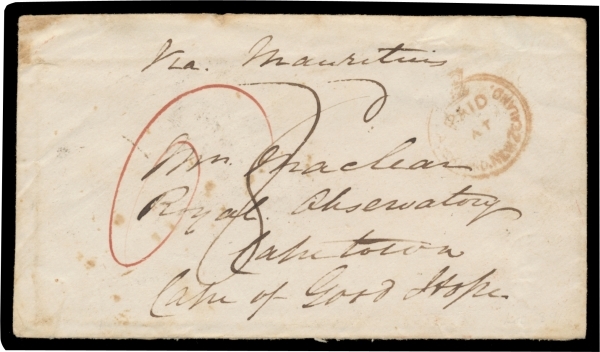 Via. Mauritius
PAID
AT
NEW ZEALAND.
Maclear
Royal Observatory
Cape town
Cape of Good Hope